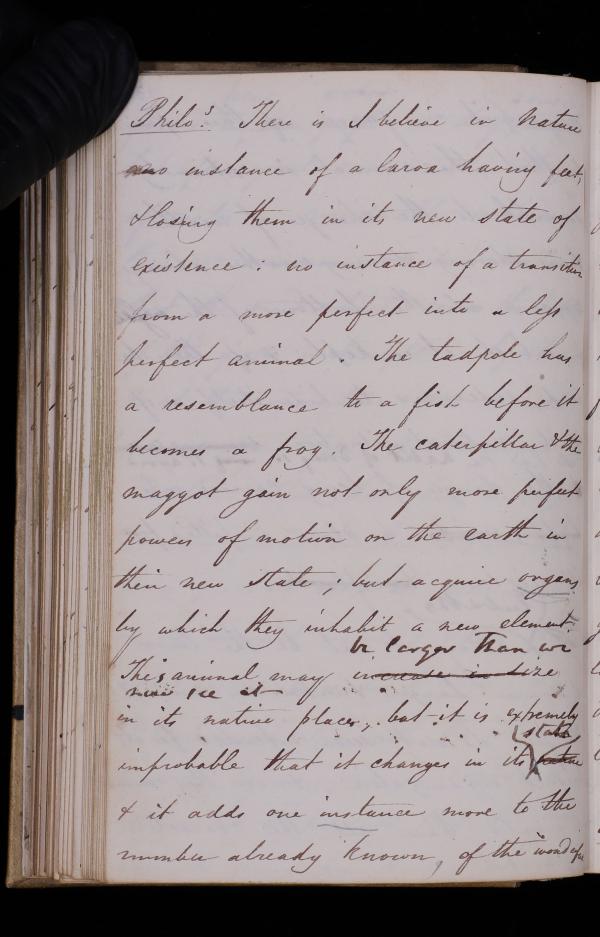 Philos. There is I believe in Nature
no instance of a larva having feet,
& losing them in its new state of
existence: no instance of a transition
from a more perfect into a less
perfect animal. The tadpole has
a resemblance to a fish before it
becomes a frog. The caterpillar & the
maggot gain not only more perfect
powers of motion on the earth in
their new state; but acquire organs
by which they inhabit a new element.
be larger than we
This animal may increase in size
now see it
in its native place, but it is extremely
state
improbable that it changes in its
& it adds one instance more to the
number already known, of the wonderful